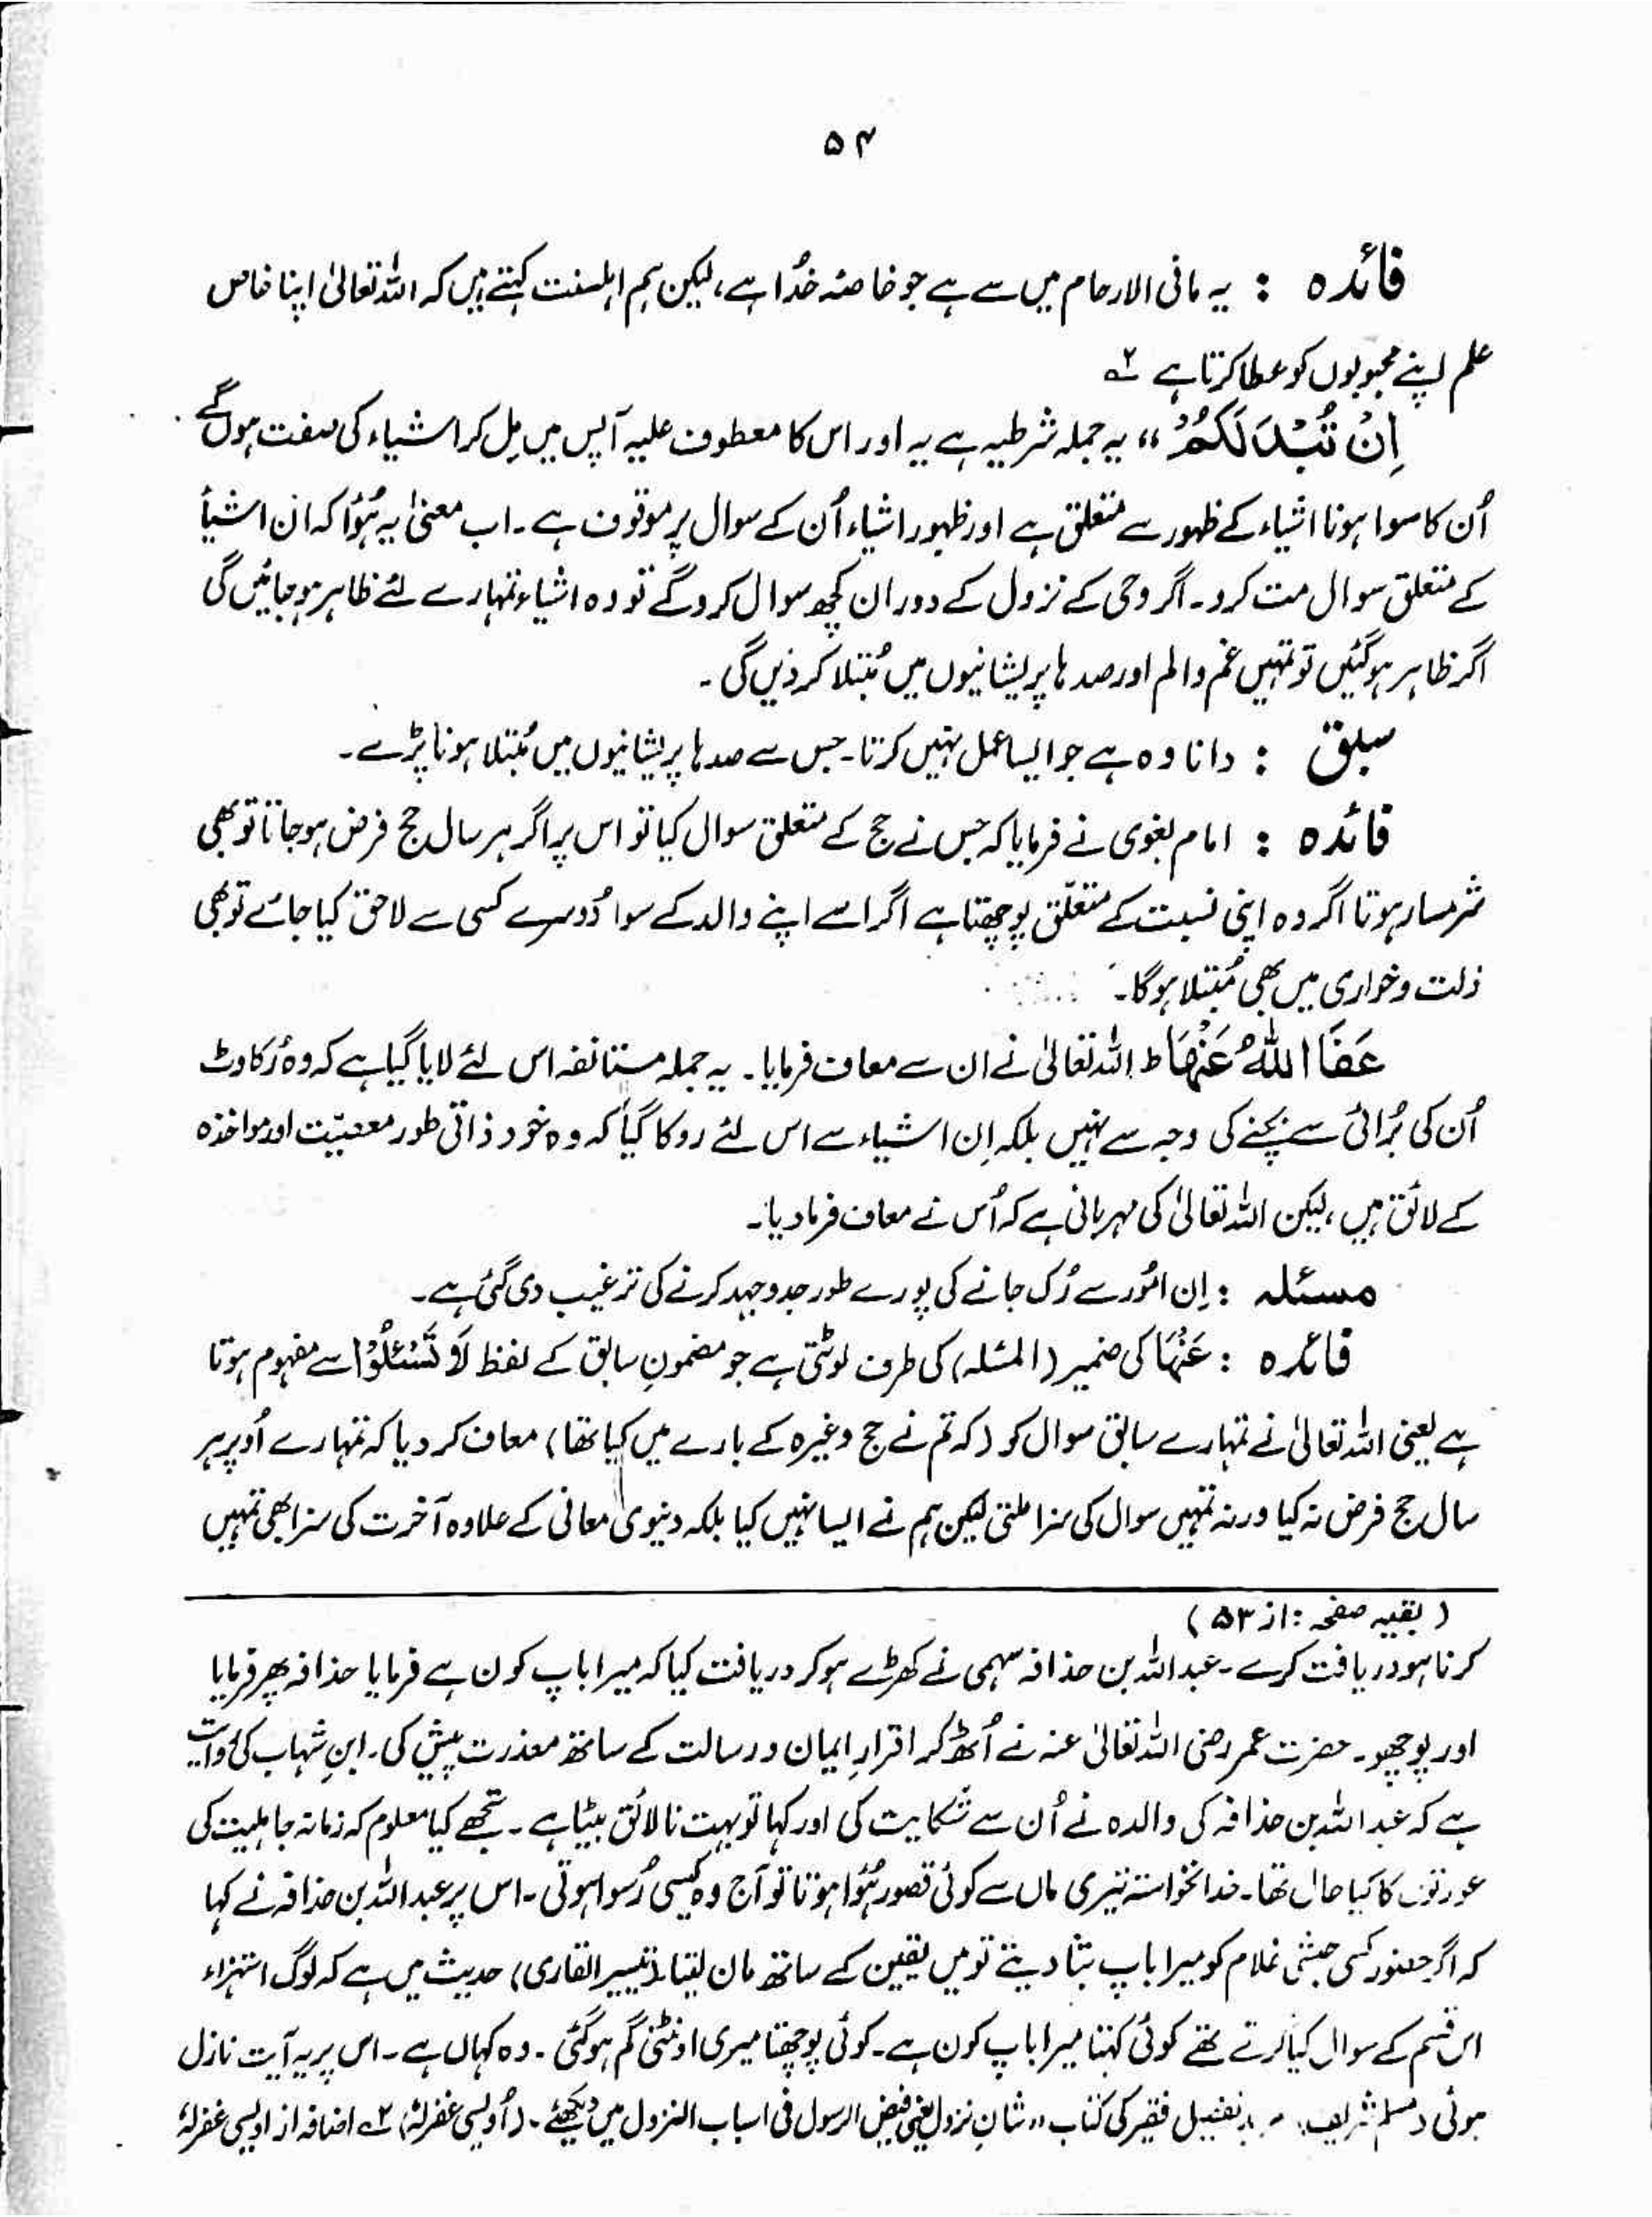 ۵۴
فائدہ : یہ مافی الارحام میں سے ہے جو خاصۂ خُدا ہے، لیکن ہم اہلسنت کہتے ہیں کہ اللہ تعالیٰ اپنا خاص
علم اپنے محبوبوں کو عطا کرتا ہے ۲ے
اِنْ تُبْدَ لَکُمْ ،، یہ جملہ شرطیہ ہے یہ اور اس کا معطوف علیہ آپس میں مِل کر اشیاء کی صفت ہوں گے
اُن کا سوا ہونا اشیاء کے ظہور سے متعلق ہے اور ظہور اشیاء اُن کے سوال پر موقوف ہے۔ اب معنیٰ یہ ہُوا کہ ان اشیأ
کے متعلق سوال مت کرو۔ اگر وحی کے نزول کے دوران کچھ سوال کرو گے تو وہ اشیاء تمہارے لئے ظاہر ہو جائیں گی
اگر ظاہر ہو گئیں تو تمہیں غم و الم اور صدہا پریشانیوں میں مُبتلا کر دیں گی ۔
سبق : دانا وہ ہے جو ایسا عمل نہیں کرتا۔ جس سے صدہا پریشانیوں میں مُبتلا ہونا پڑے۔
فائدہ : امام بغوی نے فرمایا کہ جس نے حج کے متعلق سوال کیا تو اس پر اگر ہر سال حج فرض ہو جاتا تو بھی
شرمسار ہوتا اگر وہ اپنی نسبت کے متعلّق پوچھتا ہے اگر اسے اپنے والد کے سوا دُوسرے کسی سے لاحق کیا جائے تو بھی
ذلت و خواری میں بھی مُبتلا ہو گا۔
عَفَا اللّٰہُ عَنْھَا ط اللہ تعالیٰ نے ان سے معاف فرمایا۔ یہ جملہ مستانفہ اس لئے لایا گیا ہے کہ وہ رُکاوٹ
اُن کی بُرائی سے بچنے کی وجہ سے نہیں بلکہ اِن اشیاء سے اس لئے روکا گیا کہ وہ خود ذاتی طور معصیّت اور مواخذہ
کے لائق ہیں، لیکن اللہ تعالیٰ کی مہربانی ہے کہ اُس نے معاف فرما دیا۔
مسئلہ : اِن امُور سے رُک جانے کی پورے طور جدوجہد کرنے کی ترغیب دی گئی ہے۔
فائدہ : عَنْھَا کی ضمیر (المسئلہ) کی طرف لوٹتی ہے جو مضمونِ سابق کے لفظ لَا تَسْئَلُوْا سے مفہوم ہوتا
ہے یعنی اللہ تعالیٰ نے تمہارے سابق سوال کو (کہ تم نے حج وغیرہ کے بارے میں کیا تھا) معاف کر دیا کہ تمہارے اُوپر ہر
سال حج فرض نہ کیا ورنہ تمہیں سوال کی سزا ملتی لیکن ہم نے ایسا نہیں کیا بلکہ دنیوی معافی کے علاوہ آخرت کی سزا بھی تمہیں
( بقیہ صفحہ : از ۵۳ )
کرنا ہو دریافت کرے۔ عبداللہ بن حذافہ سہمی نے کھڑے ہو کر دریافت کیا کہ میرا باپ کون ہے فرمایا حذافہ پھر فرمایا
اور پوچھو۔ حضرت عمر رضی اللہ تعالیٰ عنہ نے اُٹھ کر اقرارِ ایمان و رسالت کے ساتھ معذرت پیش کی۔ ابنِ شہاب کی روایت
ہے کہ عبداللہ بن حذافہ کی والدہ نے اُن سے شکایت کی اور کہا تو بہت نالائق بیٹا ہے۔ تجھے کیا معلوم کہ زمانہ جاہلیت کی
عورتوں کا کیا حال تھا۔ خدانخواستہ تیری ماں سے کوئی قصور ہُوا ہوتا تو آج وہ کیسی رُسوا ہوتی۔ اس پر عبداللہ بن حذافہ نے کہا
کہ اگر حضور کسی حبشی غلام کو میرا باپ بتا دیتے تو میں یقین کے ساتھ مان لیتا (تیسیر القاری) حدیث میں ہے کہ لوگ استہزاء
اس قسم کے سوال کیا کرتے تھے کوئی کہتا میرا باپ کون ہے۔ کوئی پوچھتا میری اونٹنی گم ہو گئی ۔ وہ کہاں ہے۔ اس پر یہ آیت نازل
ہوئی (مسلم شریف) تفصیل فقیر کی کتاب ،،شانِ نزول یعنی فیض الرسول فی اسباب النزول میں دیکھئے۔ (اُویسی غفرلہٗ) ۲ے اضافہ از اویسی غفرلہٗ